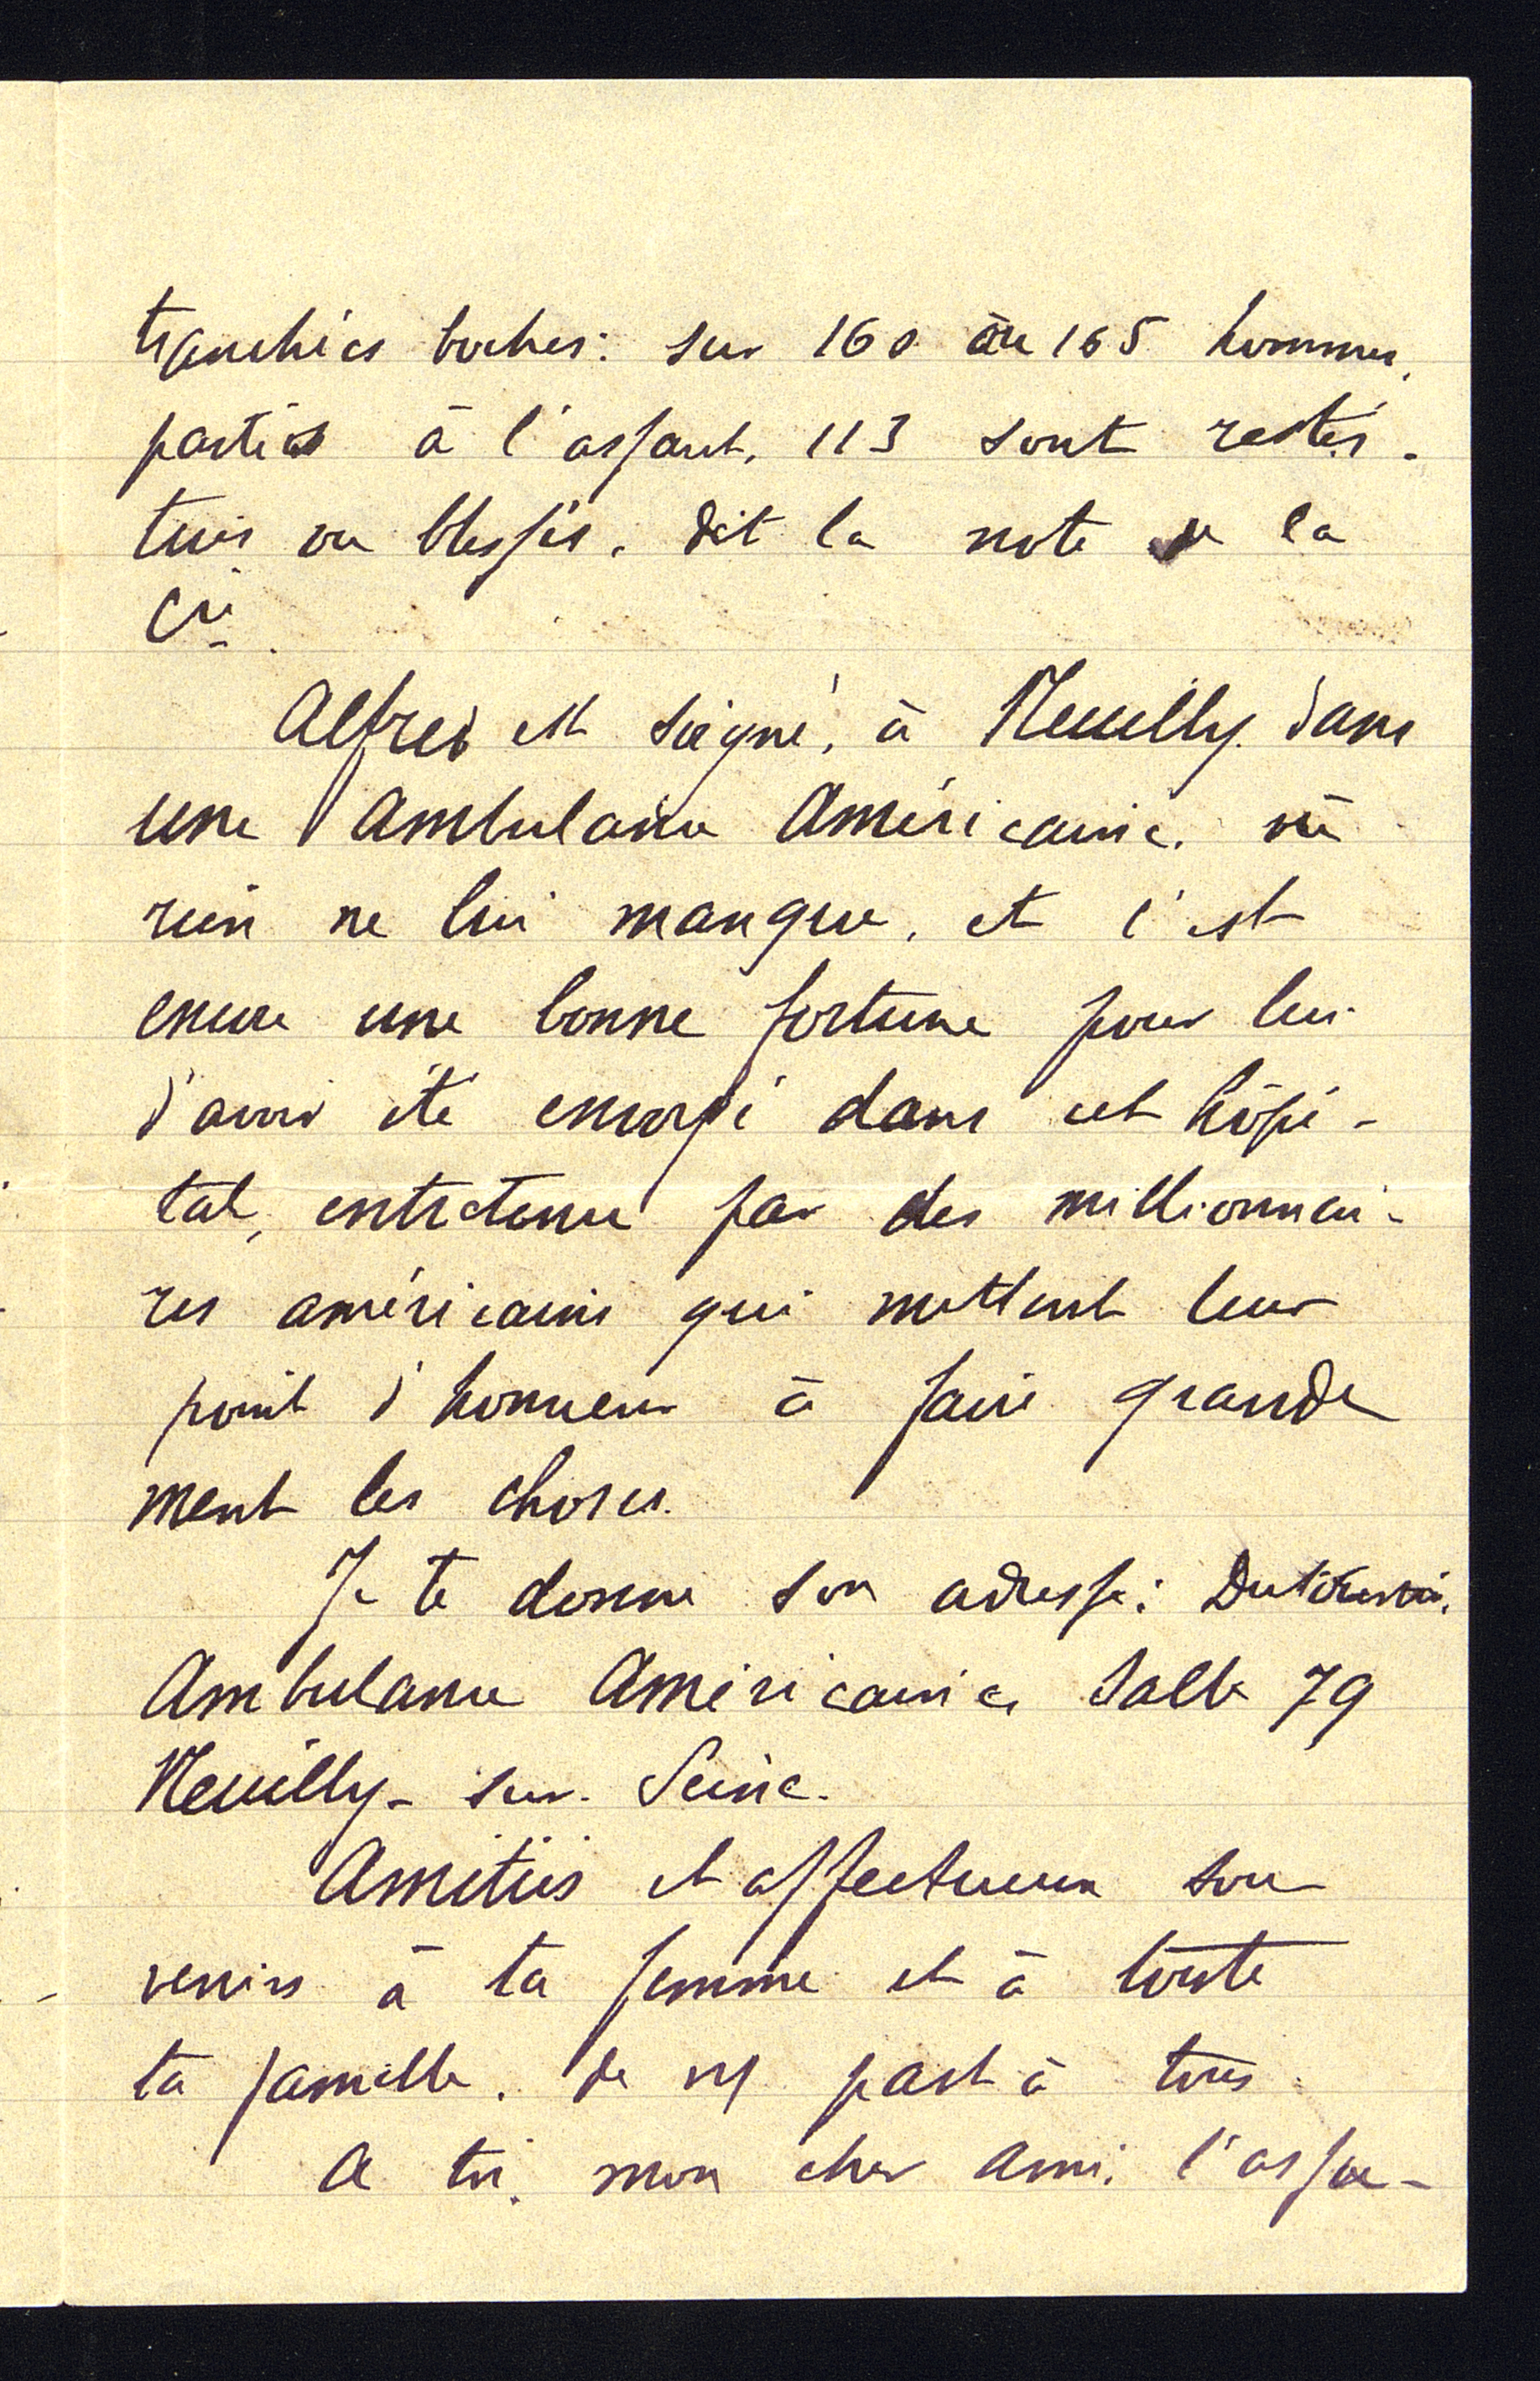 tranchées boches: sur 160 ou 165 hommes,
partis à l'assaut, 113 sont restés.
tués ou blessés, dit la note de la
Cie.
Alfred est soigné, à Neuilly, dans
une Ambulance Américaine, où
rien ne lui manque, et c'est
encore une bonne fortune pour lui
d'avoir été envoyé dans cet hôpi-
tal, entretenu par des millionnai-
res américains qui mettent leur
point d'honneur à faire grande
ment les choses.
Je te donne son adresse:
Ambulance Américaine, Salle 79
Neuilly-sur-Seine.
Amitiés et affectueux sou
venirs à ta femme et à toute
ta famille, de part à tous.
A toi, mon cher ami, l'assu-